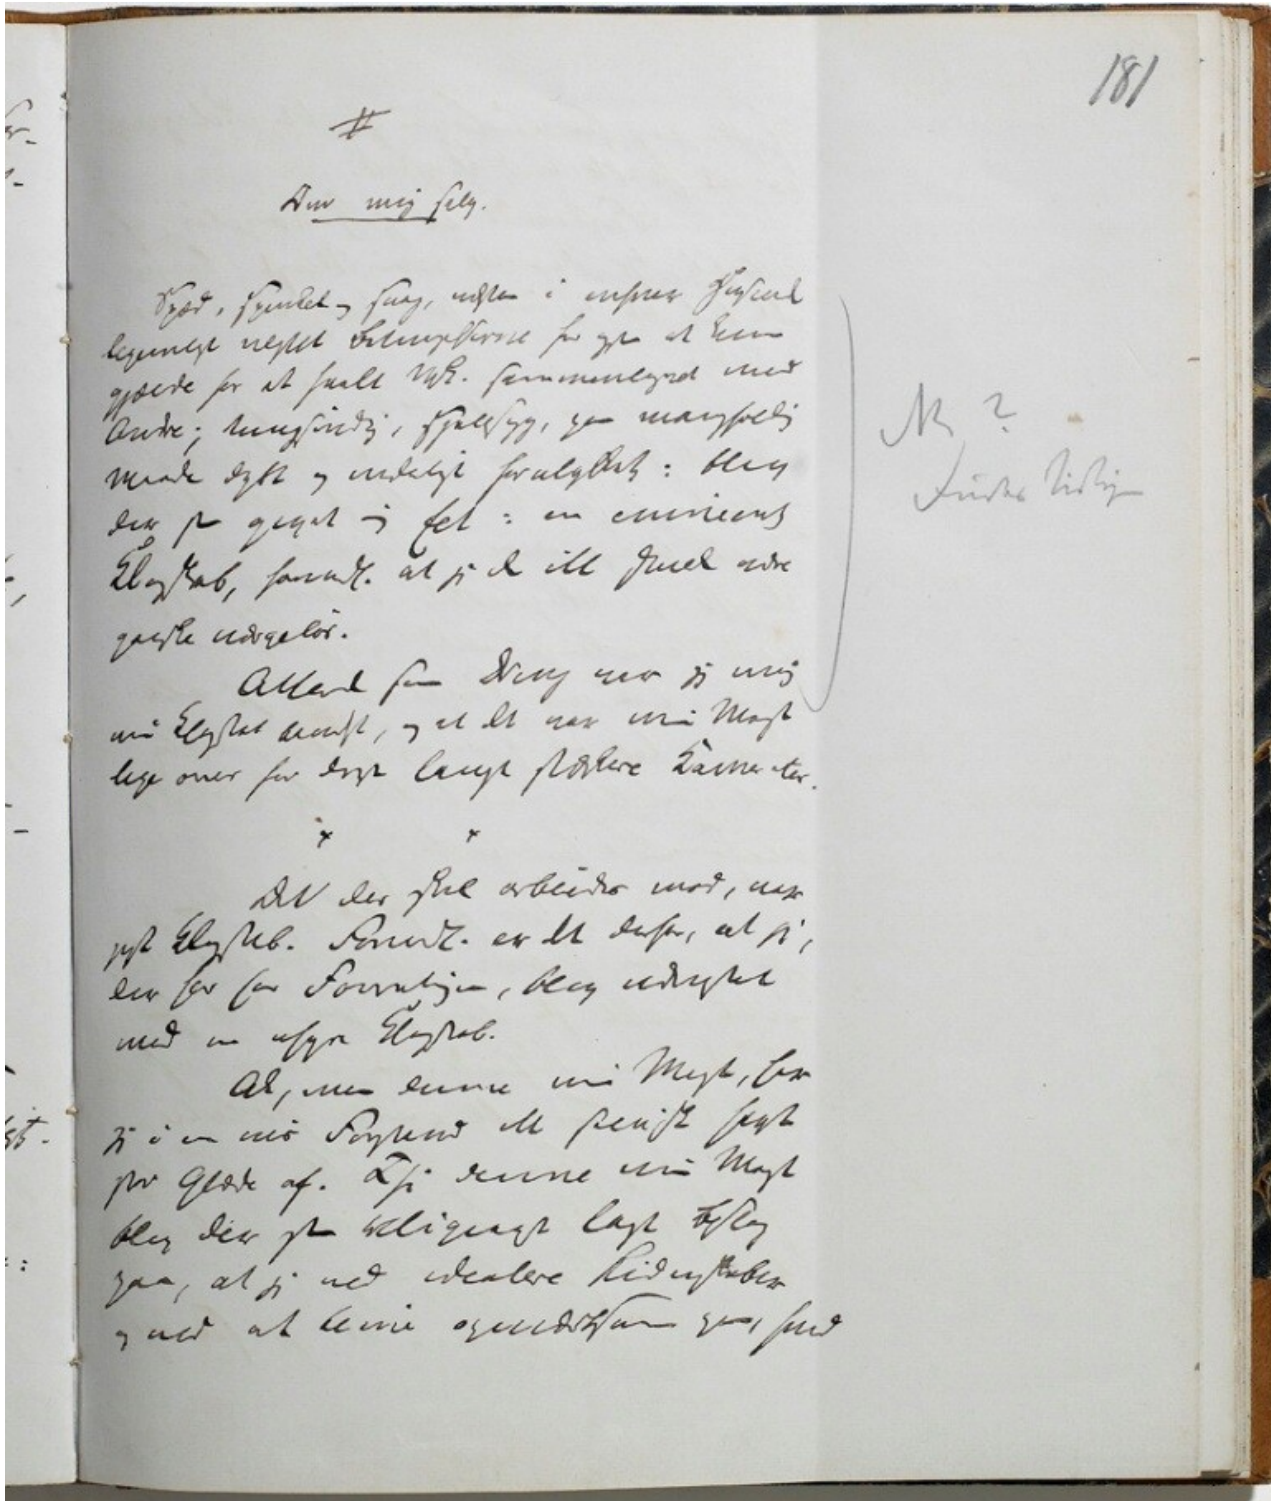 #
Om mig selv.
181
Spæd, spinkel og svag, næsten i enhver Henseende
legemligt negtet Betingelserne for ogsaa at kunne
gjælde for et heelt Msk. sammenlignet med
Andre; tungsindig, sjelesyg, paa mangfoldig
Maade dybt og inderligt forulykket: blev
der saa givet mig Eet: en eminent
Klogskab, formodtl. at jeg da ikke skulde være
ganske værgeløs.
Allerede som Dreng var jeg mig
min Klogskab bevidst, og at det var min Magt
lige over for disse langt stærkere Kammerater.
× ×
Det der skal arbeides mod, var
just Klogskab. Formodtl. er det derfor, at jeg,
der har Forretningen, blev udrustet
med en uhyre Klogskab.
Ak, men denne min Magt, har
jeg i en vis Forstand ikke havt
stor Glæde af. Thi denne min Magt
blev der saa religieust lagt Beslag
paa, at jeg ved idealere Lidenskaber
og ved at blive opmærksom paa, hvad
Nr ?